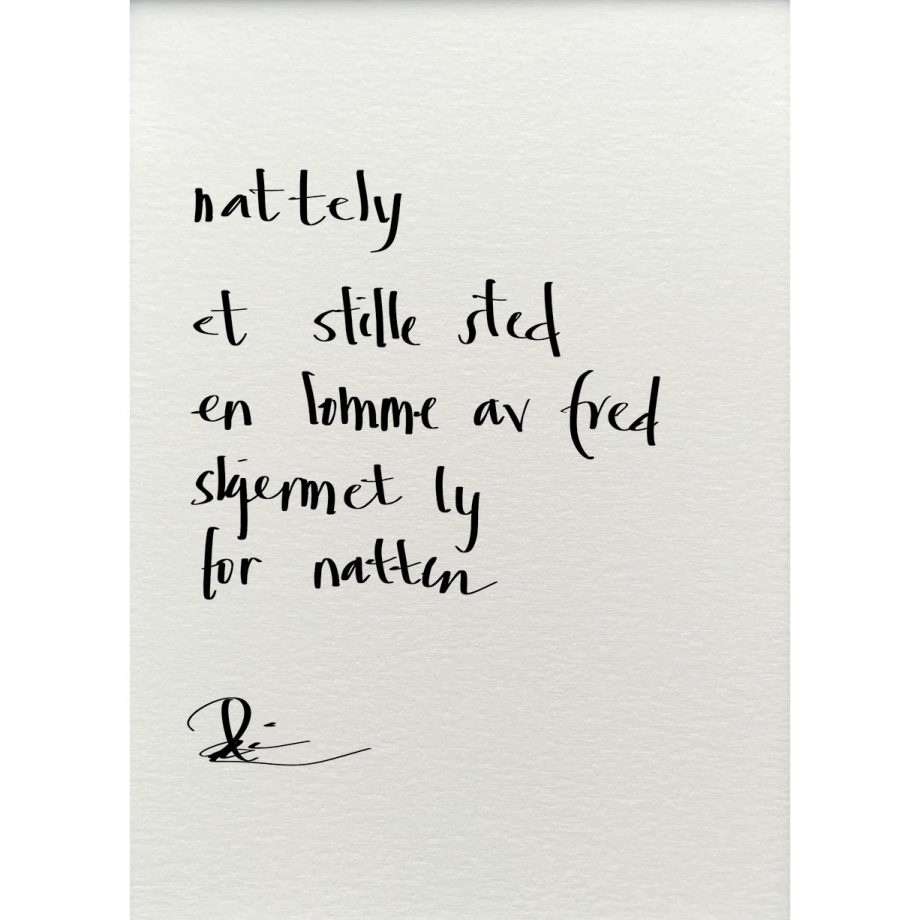 nattely
et stille sted
en lomme av fred
skjermet ly
for natten